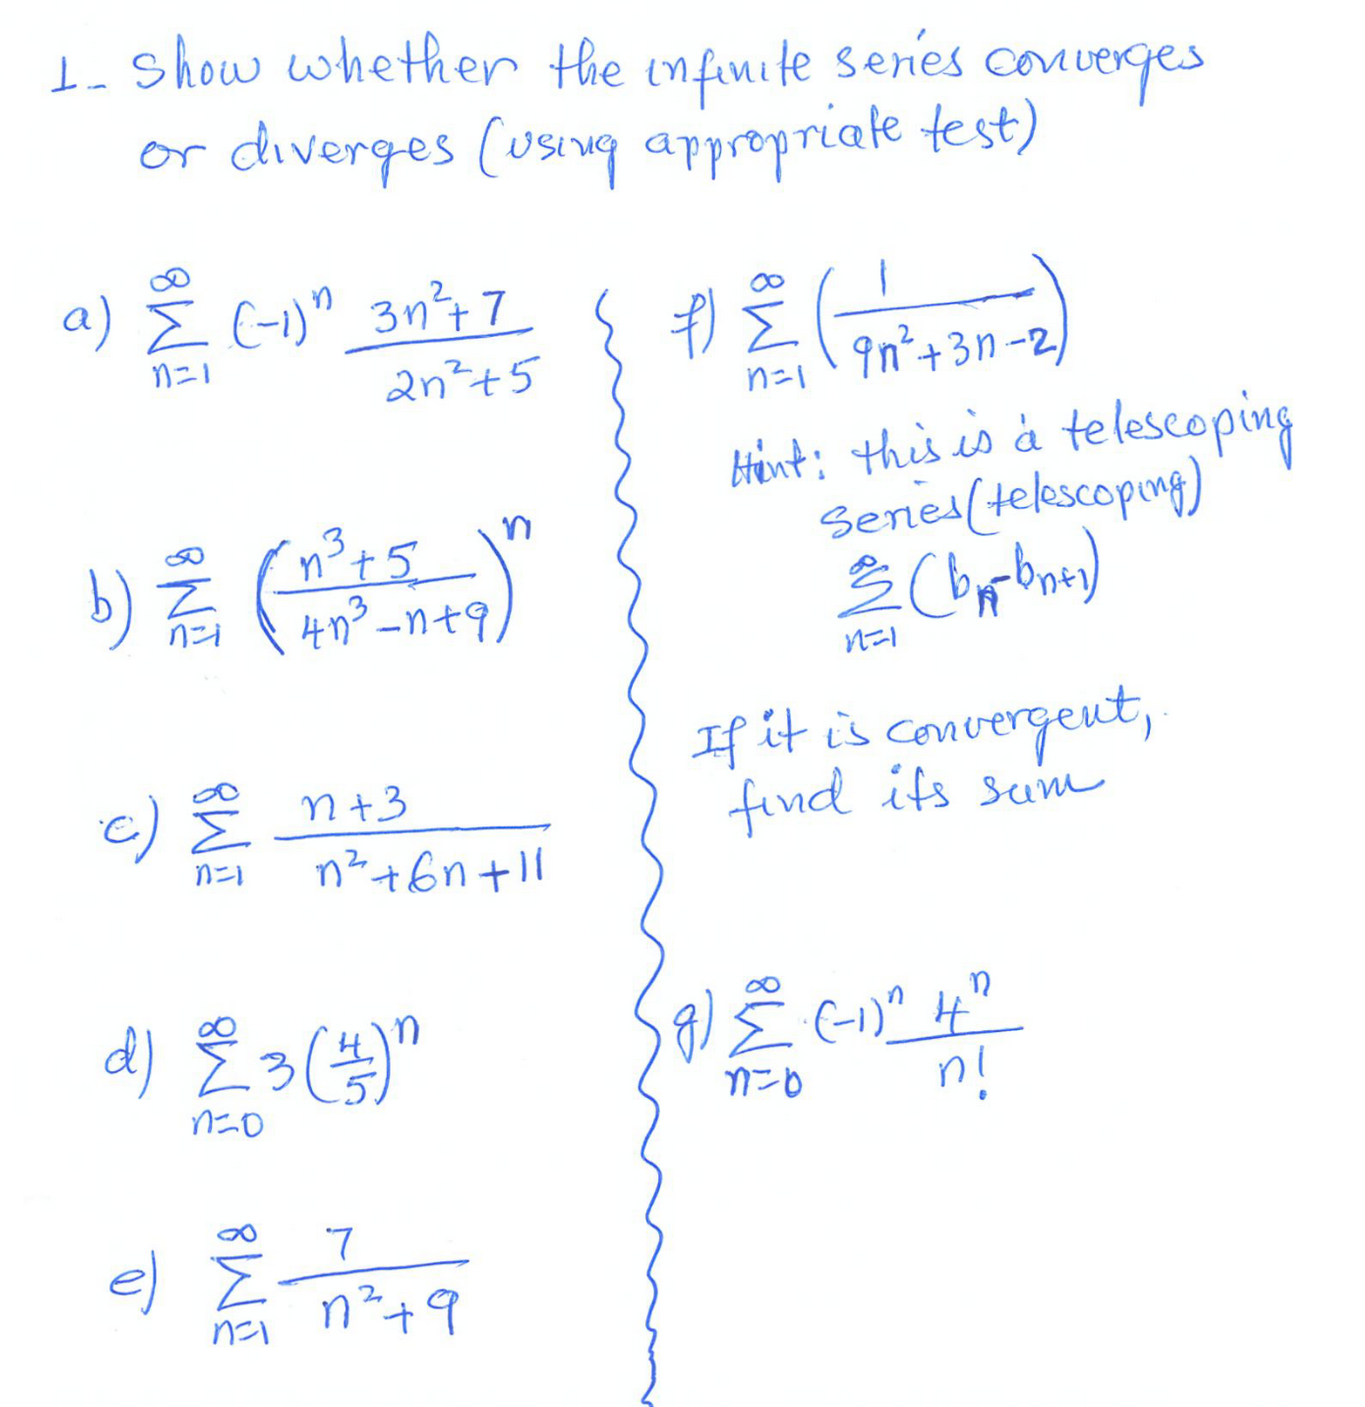 1- Show whether the infinite series converges
or diverges (using appropriate test)
a) ∞ Σ n=1 (-1)^n (3n²+7)/(2n²+5)
b) ∞ Σ n=1 ((n³+5)/(4n³-n+9))^n
c) ∞ Σ n=1 (n+3)/(n²+6n+11)
d) ∞ Σ n=0 3(4/5)^n
e) ∞ Σ n=1 7/(n²+9)
f) ∞ Σ n=1 (1/(9n²+3n-2))
Hint: this is a telescoping
series (telescoping)
∞ Σ n=1 (b_n - b_{n+1})
If it is convergent,
find its sum
g) ∞ Σ n=0 (-1)^n 4^n/n!